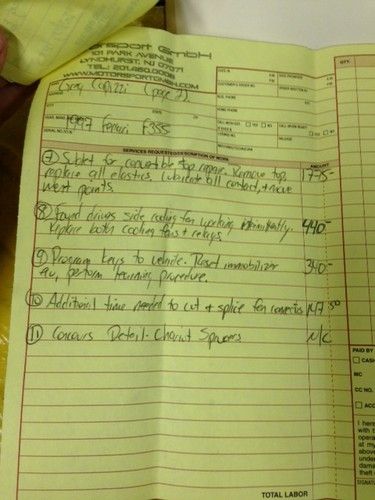 Sport GmbH
101 PARK AVENUE
LYNDHURST, NJ 07071
TEL: 201.460.0006
WWW.MOTORSPORTGMBH.COM
Greg (page 2)
1997 Ferrari F355
SERVICES REQUESTED/DESCRIPTION OF WORK
AMOUNT
QTY.
⑦ Sublet for convertible top repair. Remove top 1775-
replace all elastics. Lubricate all contact, + move
ment points.
⑧ Found drivers side cooling fan working intermittently. 440-
Replace both cooling fans + relays.
⑨ Program keys to vehicle. Reset immobilizer 340-
ecu, perform learning procedure.
⑩ Additional time needed to cut + splice fan connectors 147.50
⑪ Concours Detail - Chariot N/C
TOTAL LABOR
PAID BY
CASH
MC
CC NO.
ACC
I here
with t
opera
at my
above
under
dama
theft
SIGNATU